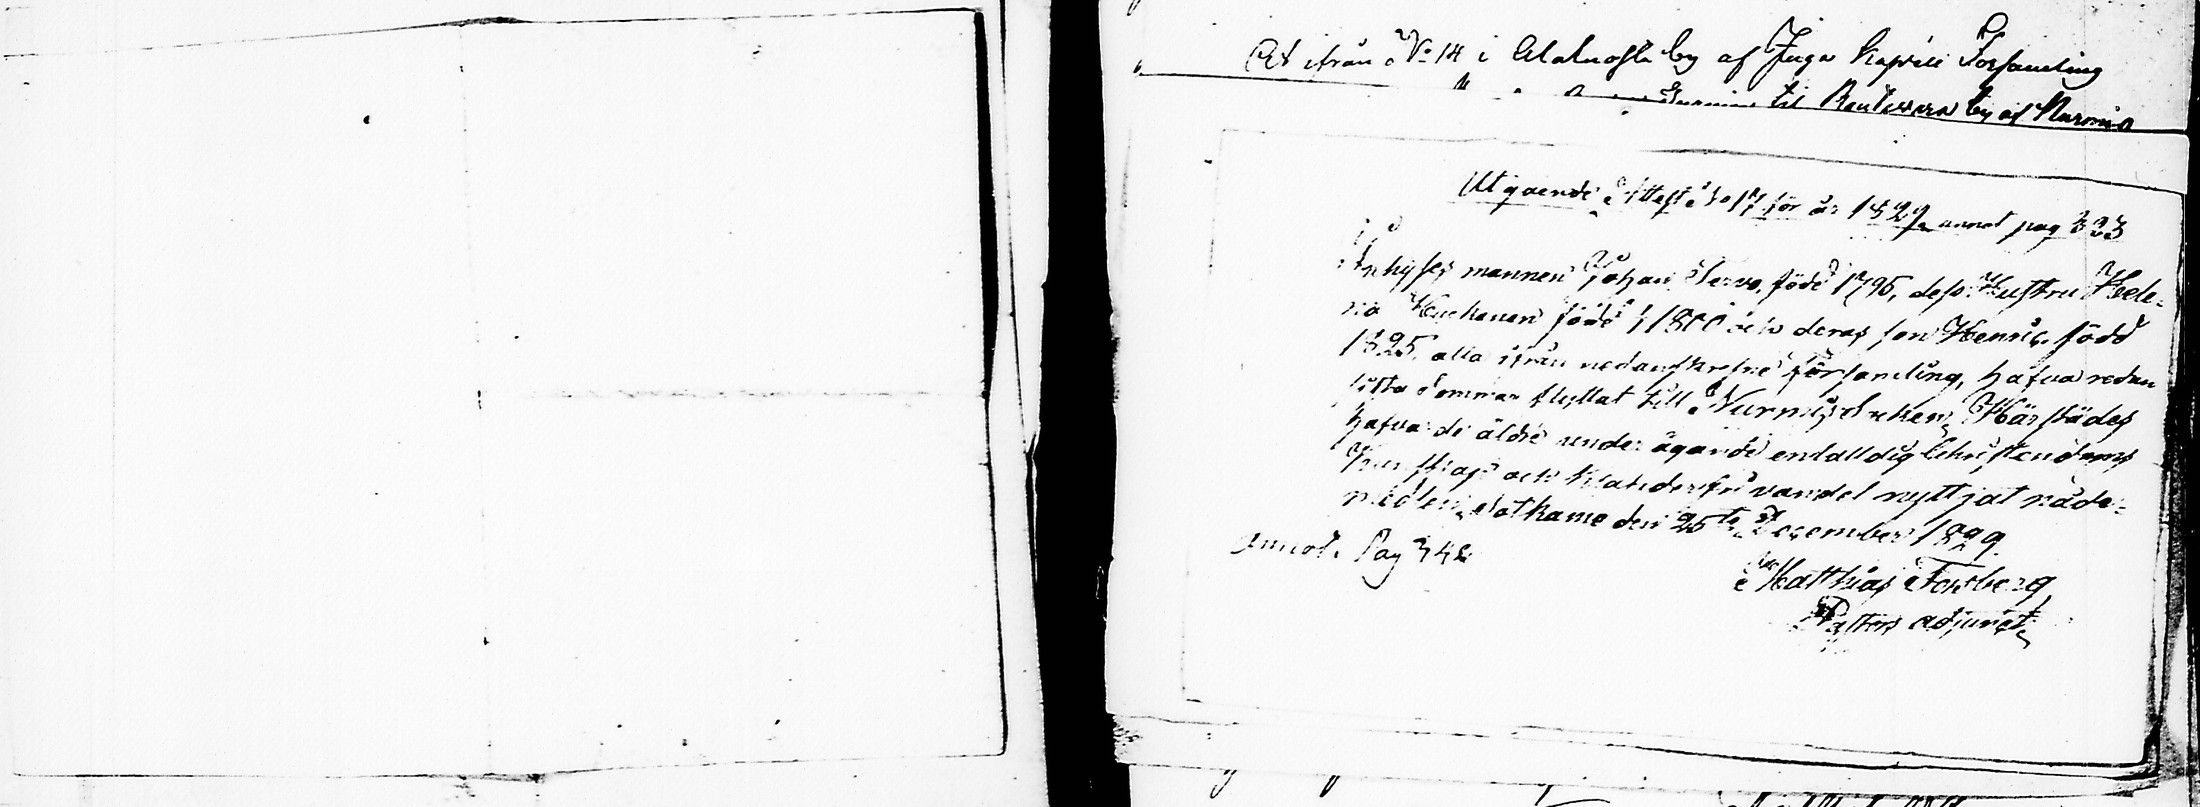 At ifrån No 14 i Alaluosta by af Juga Kapell Församling
til Rautavara by af Nurmis
Utgående Attest No 17 för år 1829 annot pag 323
Inhyses mannen Johan Servo, född 1796, dess Hustru Hele-
na född 1800 och deras son Henric född
1825, alla ifrån nedanskrefne församling, hafva redan
sista sommar flyttat till Nurmis Socken. Härstädes
hafva de äldre under ägande enfalldig Christendoms
Kunskap och klanderfri vandel nyttjat nåde-
medlen, Sotkamo den 25te December 1829.
Matthias Forsberg
Pastors adjunct.
Annot. Pag 342